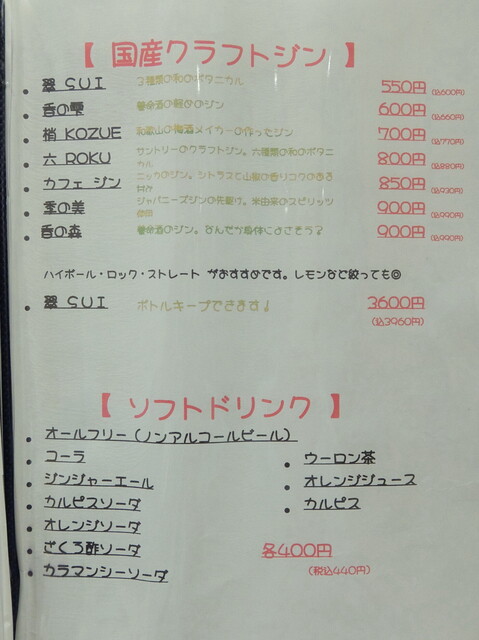 【 国産クラフトジン 】
・翠 SUI 3種類の和のボタニカル 550円 (込600円)
・香の雫 養命酒の軽めのジン 600円 (込660円)
・梢 KOZUE 和歌山の梅酒メイカーの作ったジン 700円 (込770円)
・六 ROKU サントリーのクラフトジン。六種類の和のボタニカル 800円 (込880円)
・カフェ ジン ニッカのジン。シトラスと山椒の香りコクのある甘み 850円 (込930円)
・季の美 ジャパニーズジンの先駆け。米由来のスピリッツ使用 900円 (込990円)
・香の森 養命酒のジン。なんだか身体によさそう? 900円 (込990円)
ハイボール・ロック・ストレート がおすすめです。レモンなど絞っても◎
・翠 SUI ボトルキープできます! 3600円
(込3960円)
【 ソフトドリンク 】
・オールフリー(ノンアルコールビール)
・コーラ
・ジンジャーエール
・カルピスソーダ
・オレンジソーダ
・ざくろ酢ソーダ
・カラマンシーソーダ
・ウーロン茶
・オレンジジュース
・カルピス
各400円
(税込440円)